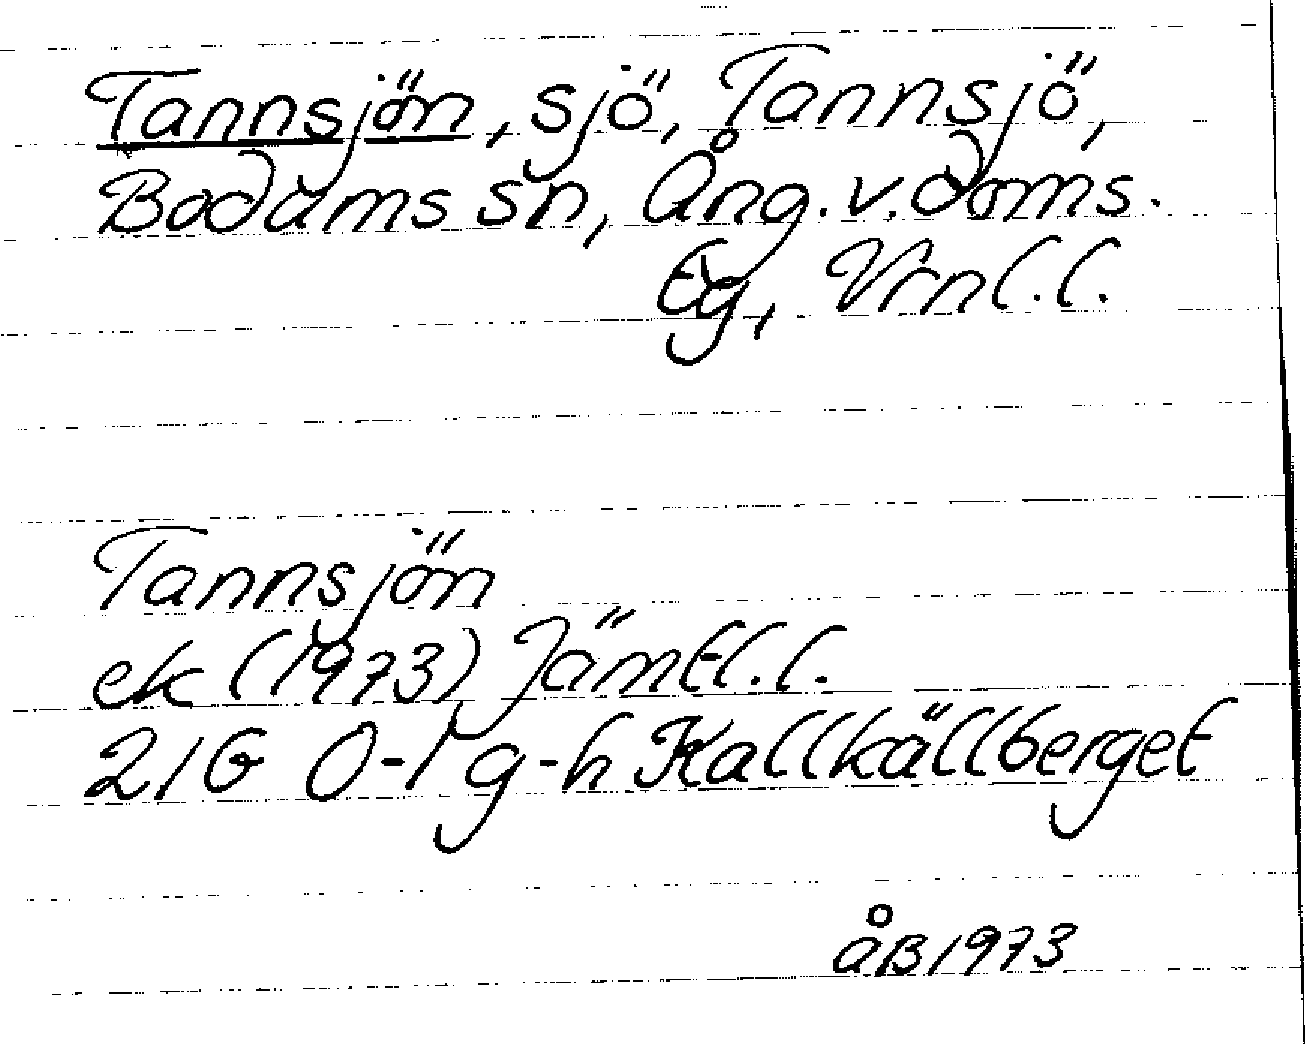 Tannsjön, sjö, Tannsjö,
Bodums sn, Ång. v. doms.
tg, Vrnl. l.
Tannsjön
ek (1973) Jämtl. l.
21G 0-1 g-h Kallkällberget
åB 1973